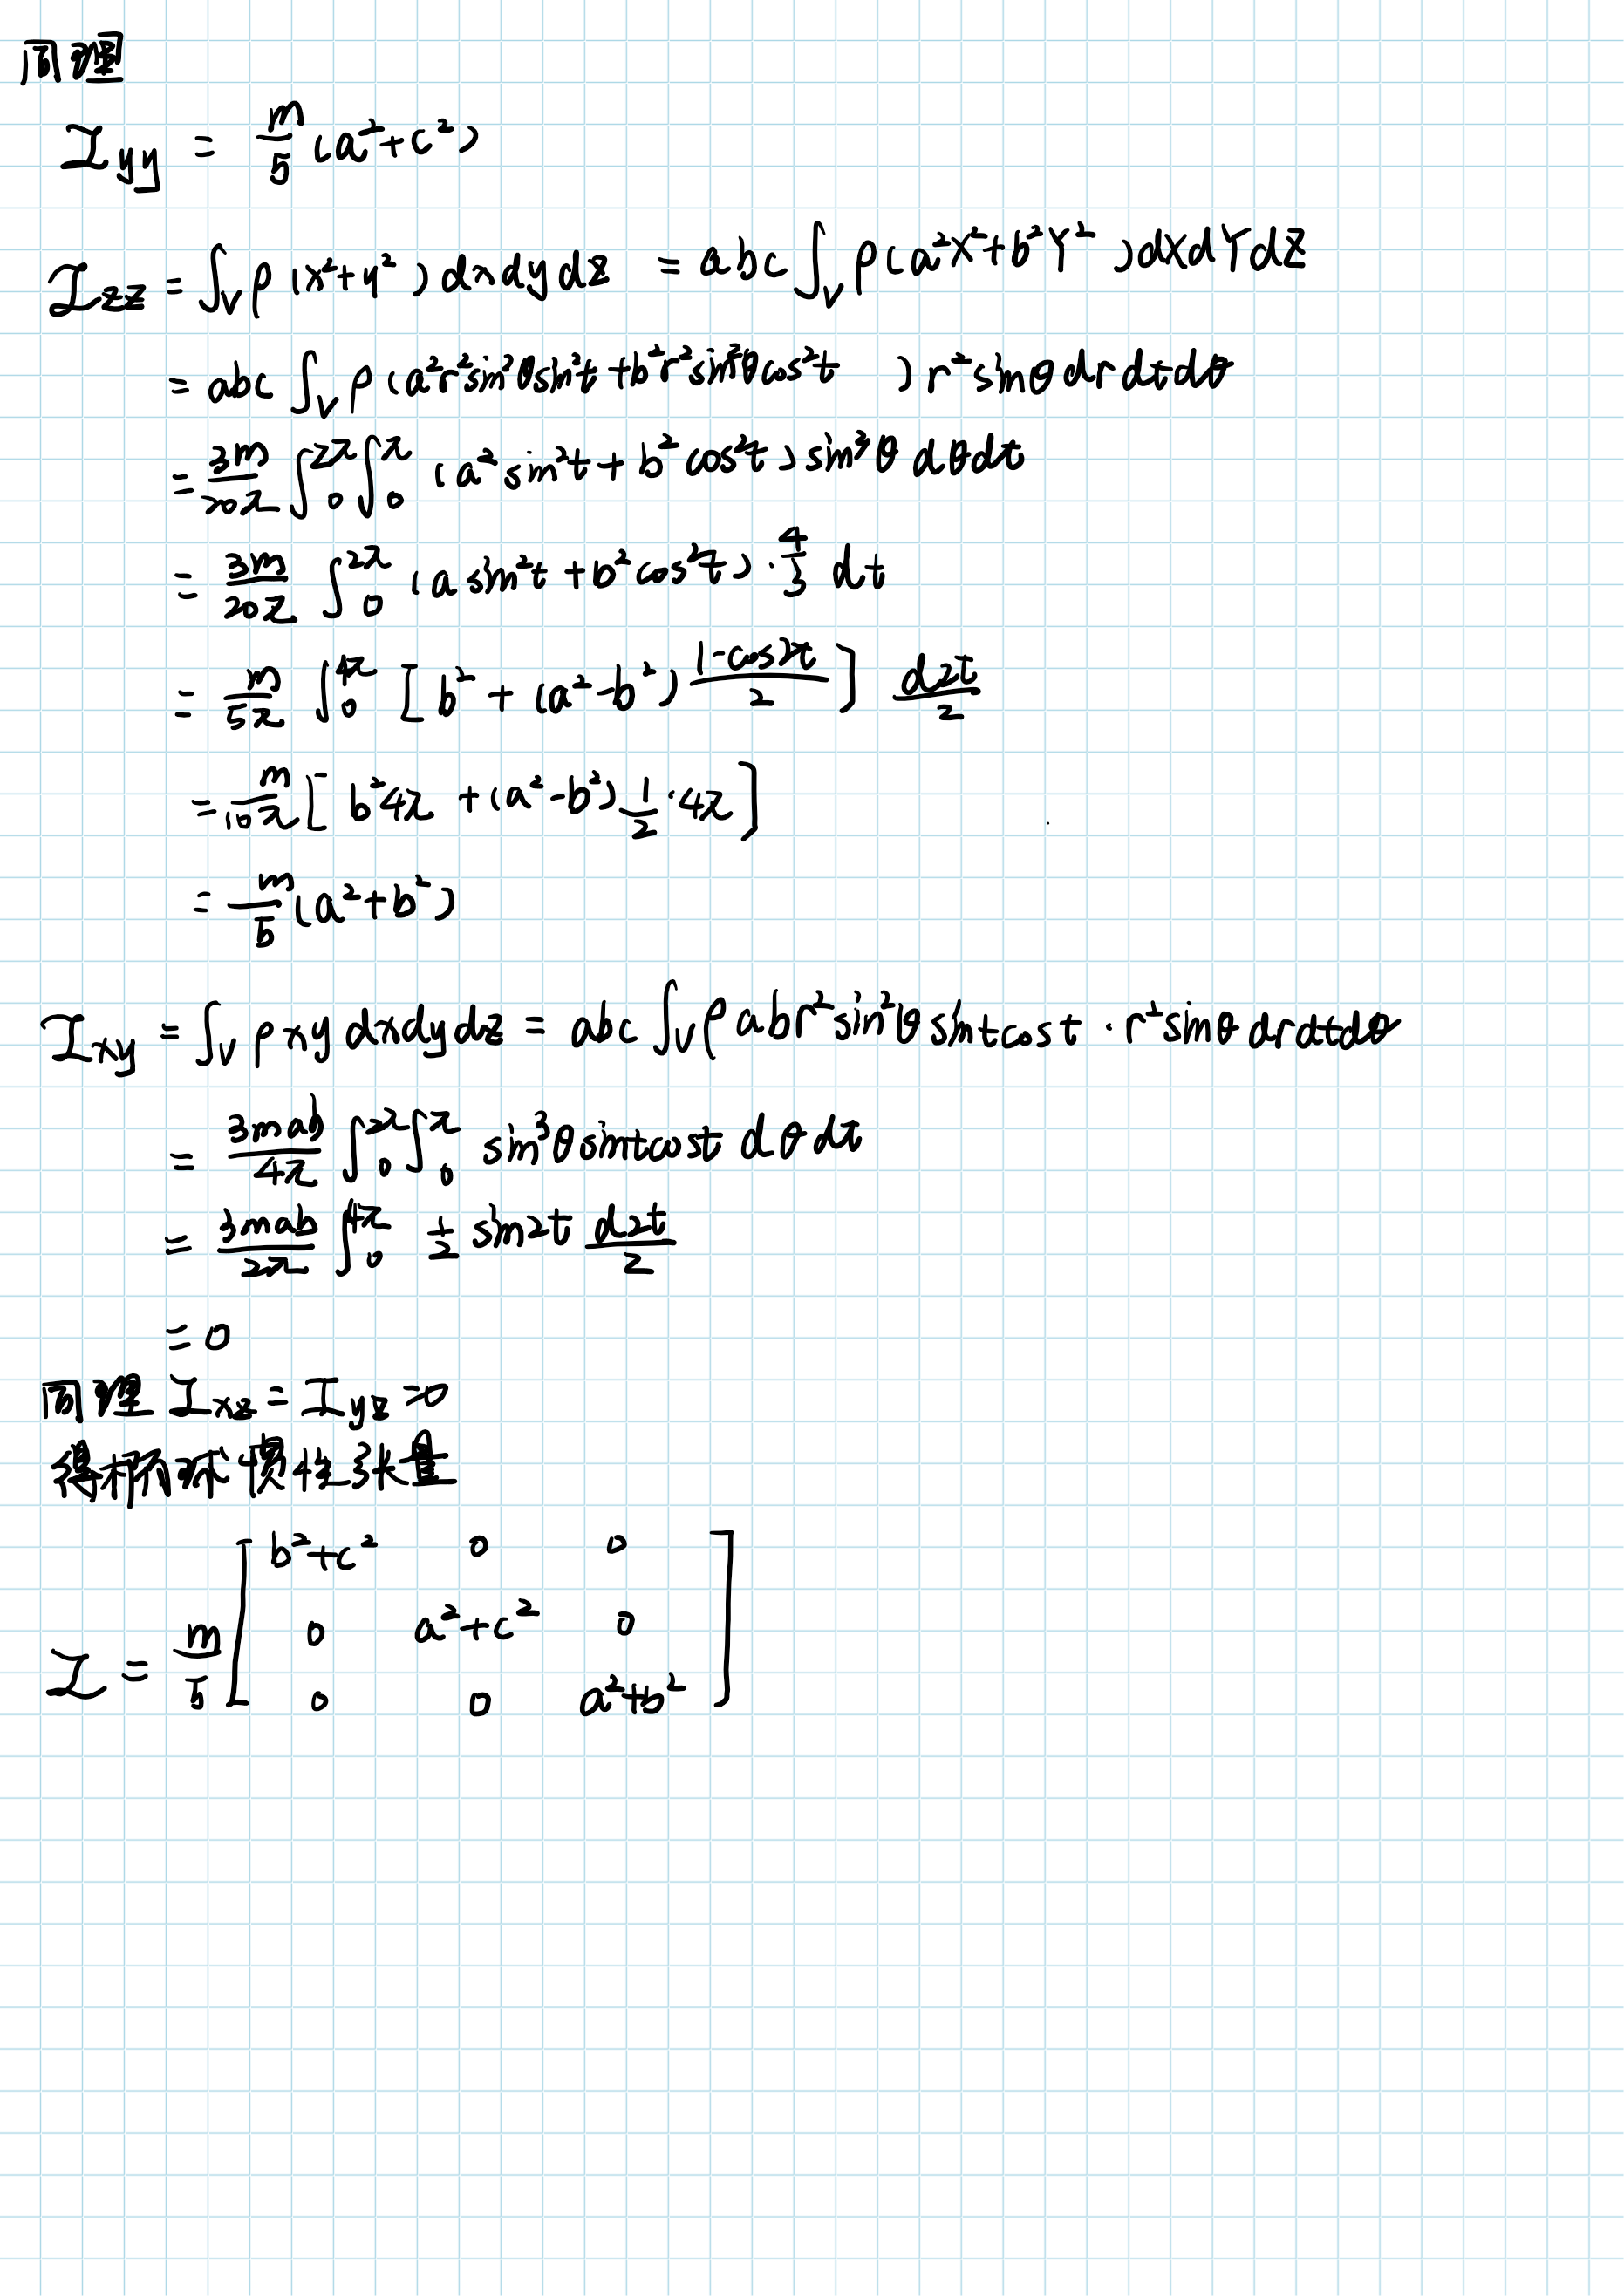 同理
I_yy = m/5 (a²+c²)
I_zz = ∫_V ρ (x²+y²) dxdydz = abc ∫_V ρ (a²X²+b²Y²) dXdYdZ
= abc ∫_V ρ (a²r²sin²θsin²t + b²r²sin²θcos²t) r²sinθ dr dt dθ
= 3m/20π ∫_0^2π ∫_0^π (a² sin²t + b² cos²t) sin³θ dθdt
= 3m/20π ∫_0^2π (a sin²t + b² cos²t) · 4/3 dt
= m/5π ∫_0^4π [b² + (a²-b²) (1-cos2t)/2] d2t/2
= m/10π [b²4π + (a²-b²) 1/2 · 4π]
= m/5 (a²+b²)
I_xy = ∫_V ρ xy dxdydz = abc ∫_V ρ abr²sin²θ sintcost · r²sinθ drdtdθ
= 3mab/4π ∫_0^2π ∫_0^π sin³θ sintcost dθ dt
= 3mab/2π ∫_0^4π 1/2 sin2t d2t/2
= 0
同理 I_xz = I_yz = 0
得椭球惯性张量
I = m/5 [b²+c² 0 0
0 a²+c² 0
0 0 a²+b²]